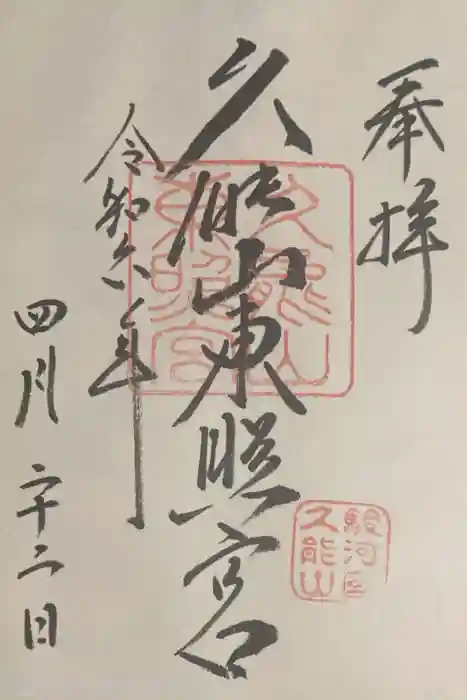 奉拝
久能山東照宮
令和六年
四月二十二日
久能山
東照宮
駿河國
久能山